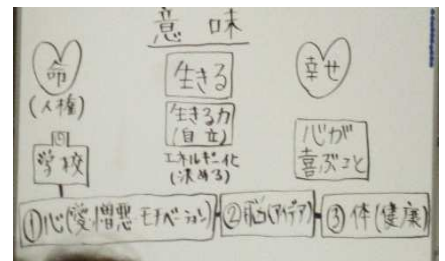 意味
命
(人権)
学校
生きる
生きる力
(自立)
エネルギー化
(決める)
幸せ
心が
喜ぶこと
①心(愛・憎悪・モチベーション)
②脳(アイデア)
③体(健康)